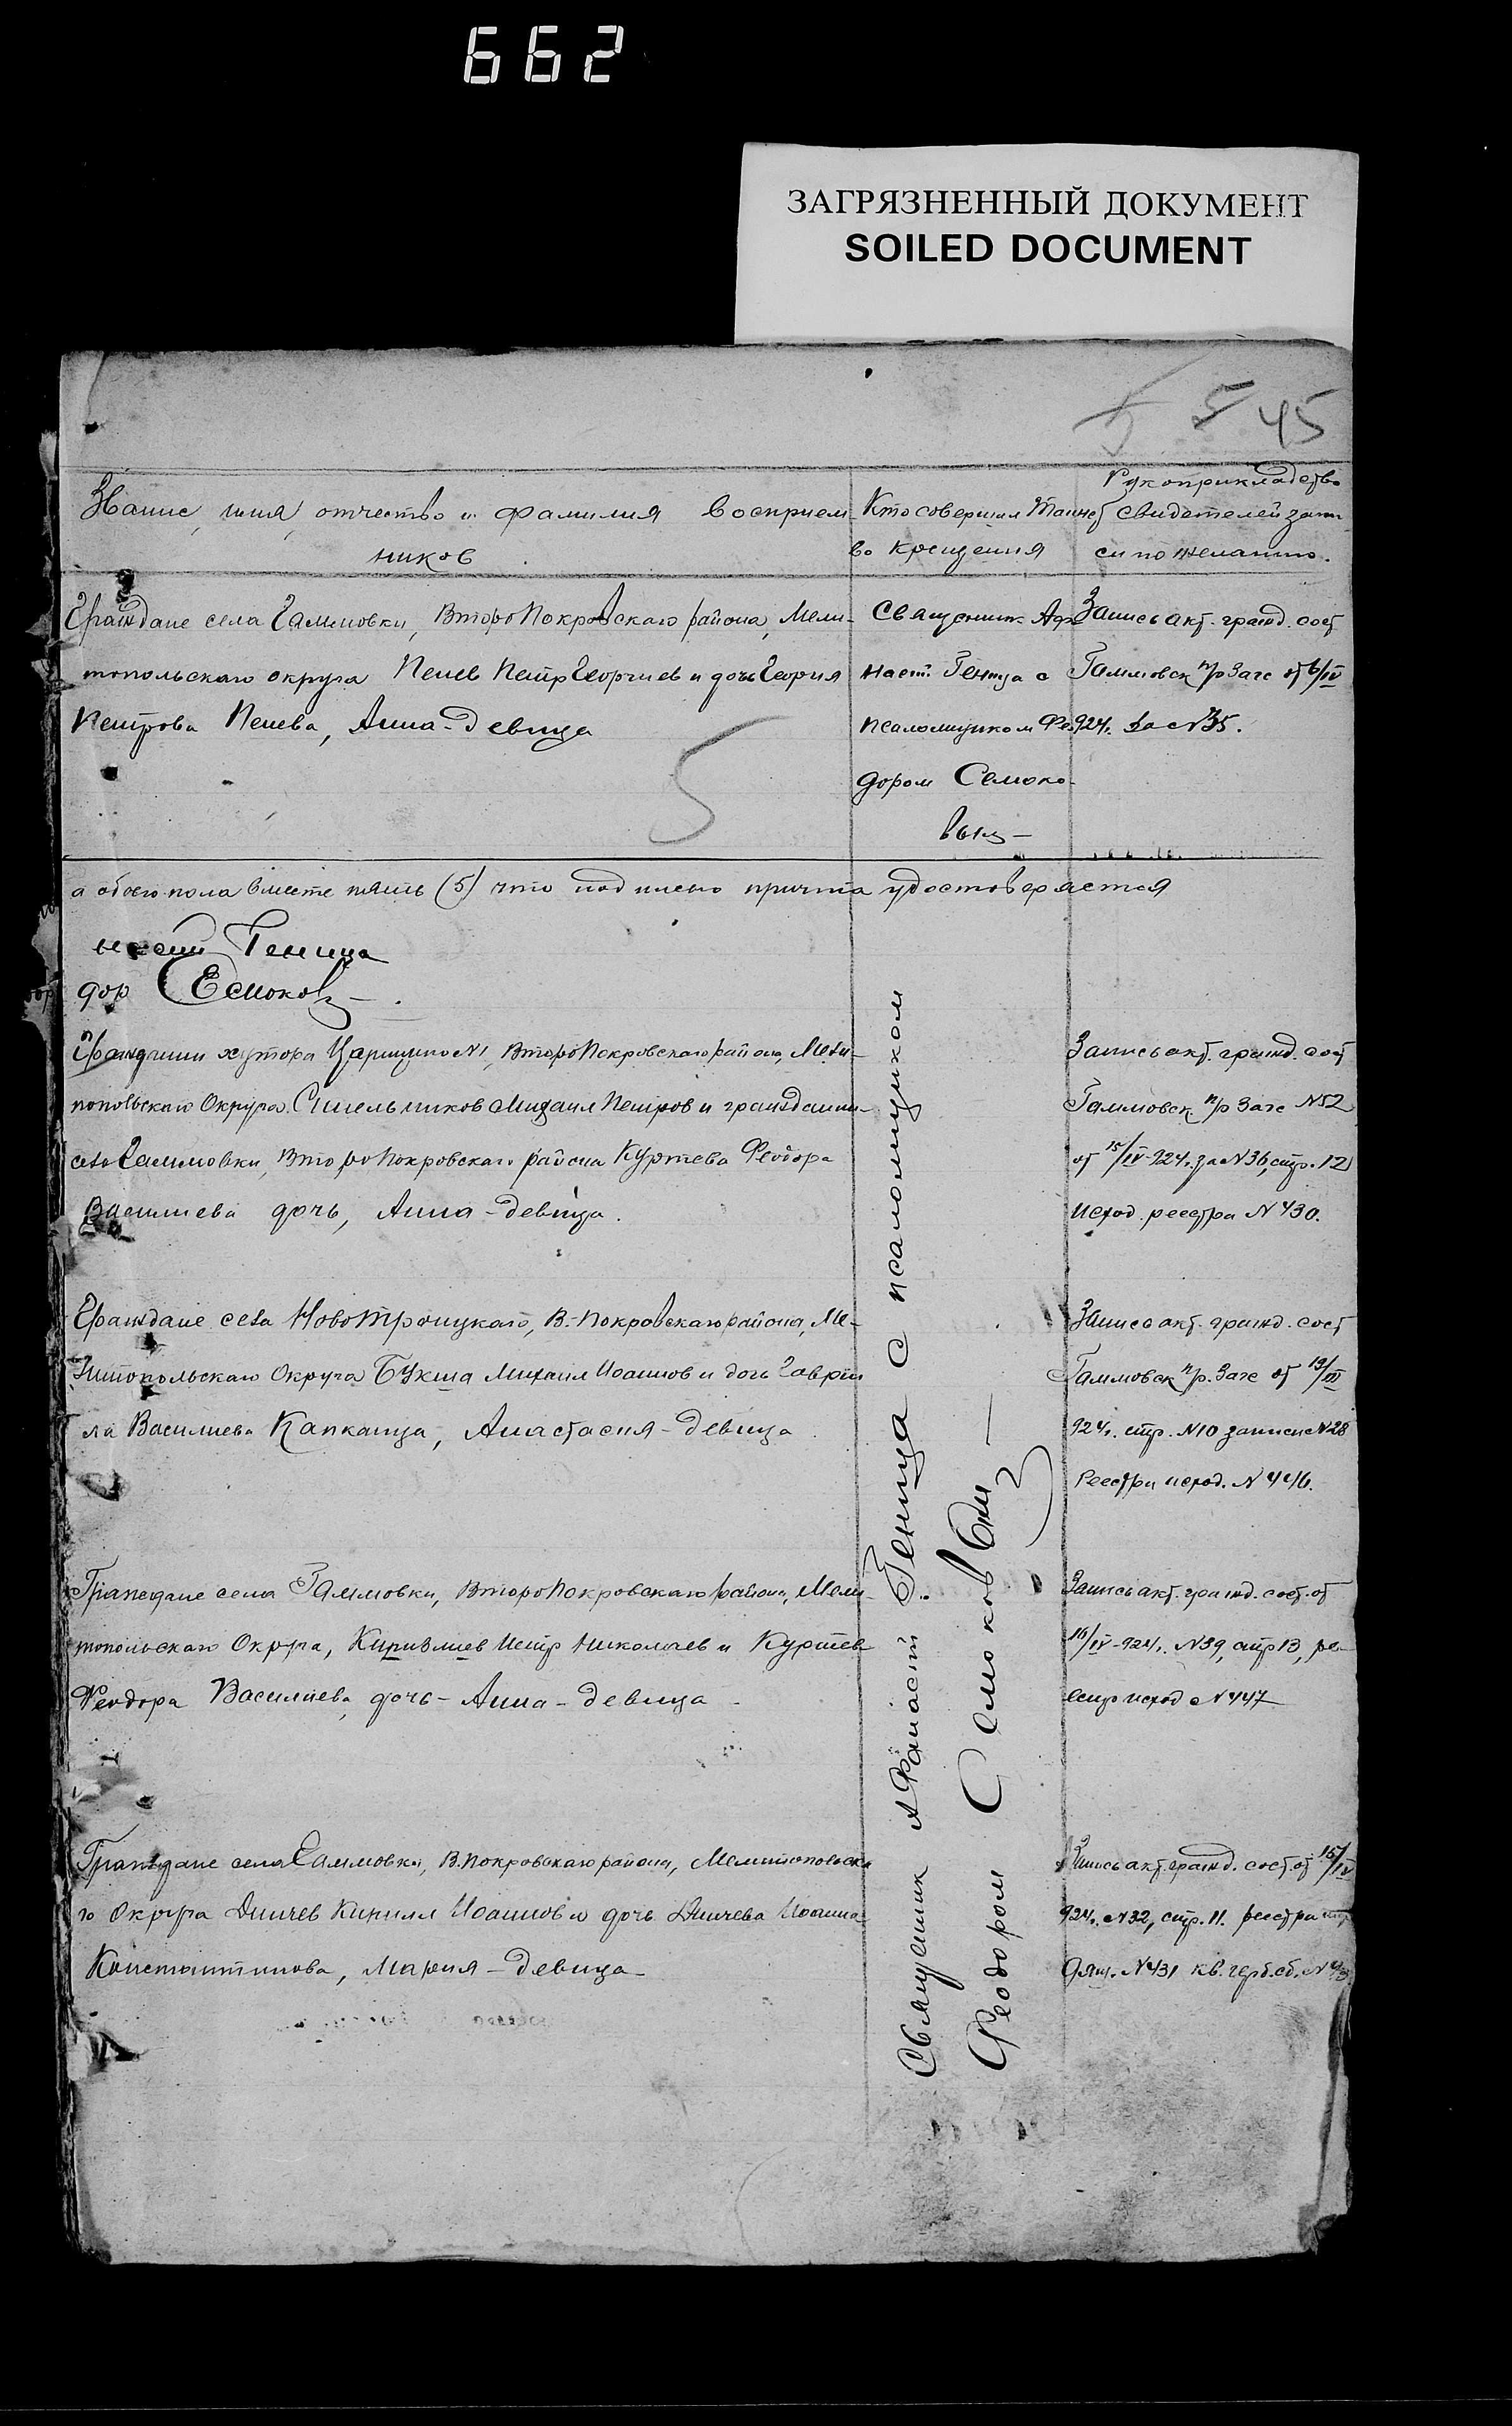 662
ЗАГРЯЗНЕННЫЙ ДОКУМЕНТ
SOILED DOCUMENT
5 45
Звание, имя, отчество и фамилия восприем-
ников
Кто совершил Таинст
во крещения
Рукоприкладство
свидетелей запи
си по желанию.
Граждане села Гаммовки, ВтороПокровскаго района, Мели-
топольскаго округа Пенев Петр Георгиев и дочь Георгия
Петрова Пенева, Анна-девица
Священник Афа
наст. Геница с
псаломщиком Фео
дором Семоко-
вым —
Запись акт. гражд. сост
Гаммовск п/р Загс от 6/IV
924г. за №35.
5
а обоего пола вместе пять (5) что подписью причта удостоверяется
насий Геница
дор Семоков
Гражданин хутора Царицыно №1, ВтороПокровскаго района, Мели-
топольскаго Округа Синельников Михаил Петров и гражданин-
села Гаммовки, ВтороПокровскаго района Куртева Феодора
Василиева дочь, Анна-девица.
Запись акт. гражд. сост
Гаммовск п/р Загс №52
от 15/IV-924г. за №36, стр. 12
исход. реестра №430.
Граждане села НовоТроицкаго, В.-Покровскаго района, Ме-
литопольскаго Округа Букша Михаил Иоаннов и дочь Гаврии
ла Василиева Капканца, Анастасия-девица
Запись акт. гражд. сост
Гаммовск п/р. Загс от 19/III
924г. стр. №10 записи №28
Реестра исход. №446.
Граждане села Гаммовки, ВтороПокровскаго района, Мели-
топольскаго Округа, Киризлиев Петр Николаев и Куртев
Феодора Василиева, дочь-Анна-девица
Запись акт. гражд. сост. от
16/IV-924г. №39, стр 13, ре-
естр исход №447
Граждане села Гаммовки, В.Покровскаго района, Мелитопольска
го Округа Динчев Кирилл Иоаннов и дочь Динчева Иоанна
Константинова, Мария-девица
Запись акт. гражд. сост. от 15/IV
924г. №32, стр. 11. реестра
№431 кв. герб. сб.
Священник Афанасий Геница с псаломщиком
Феодором Семоковым —